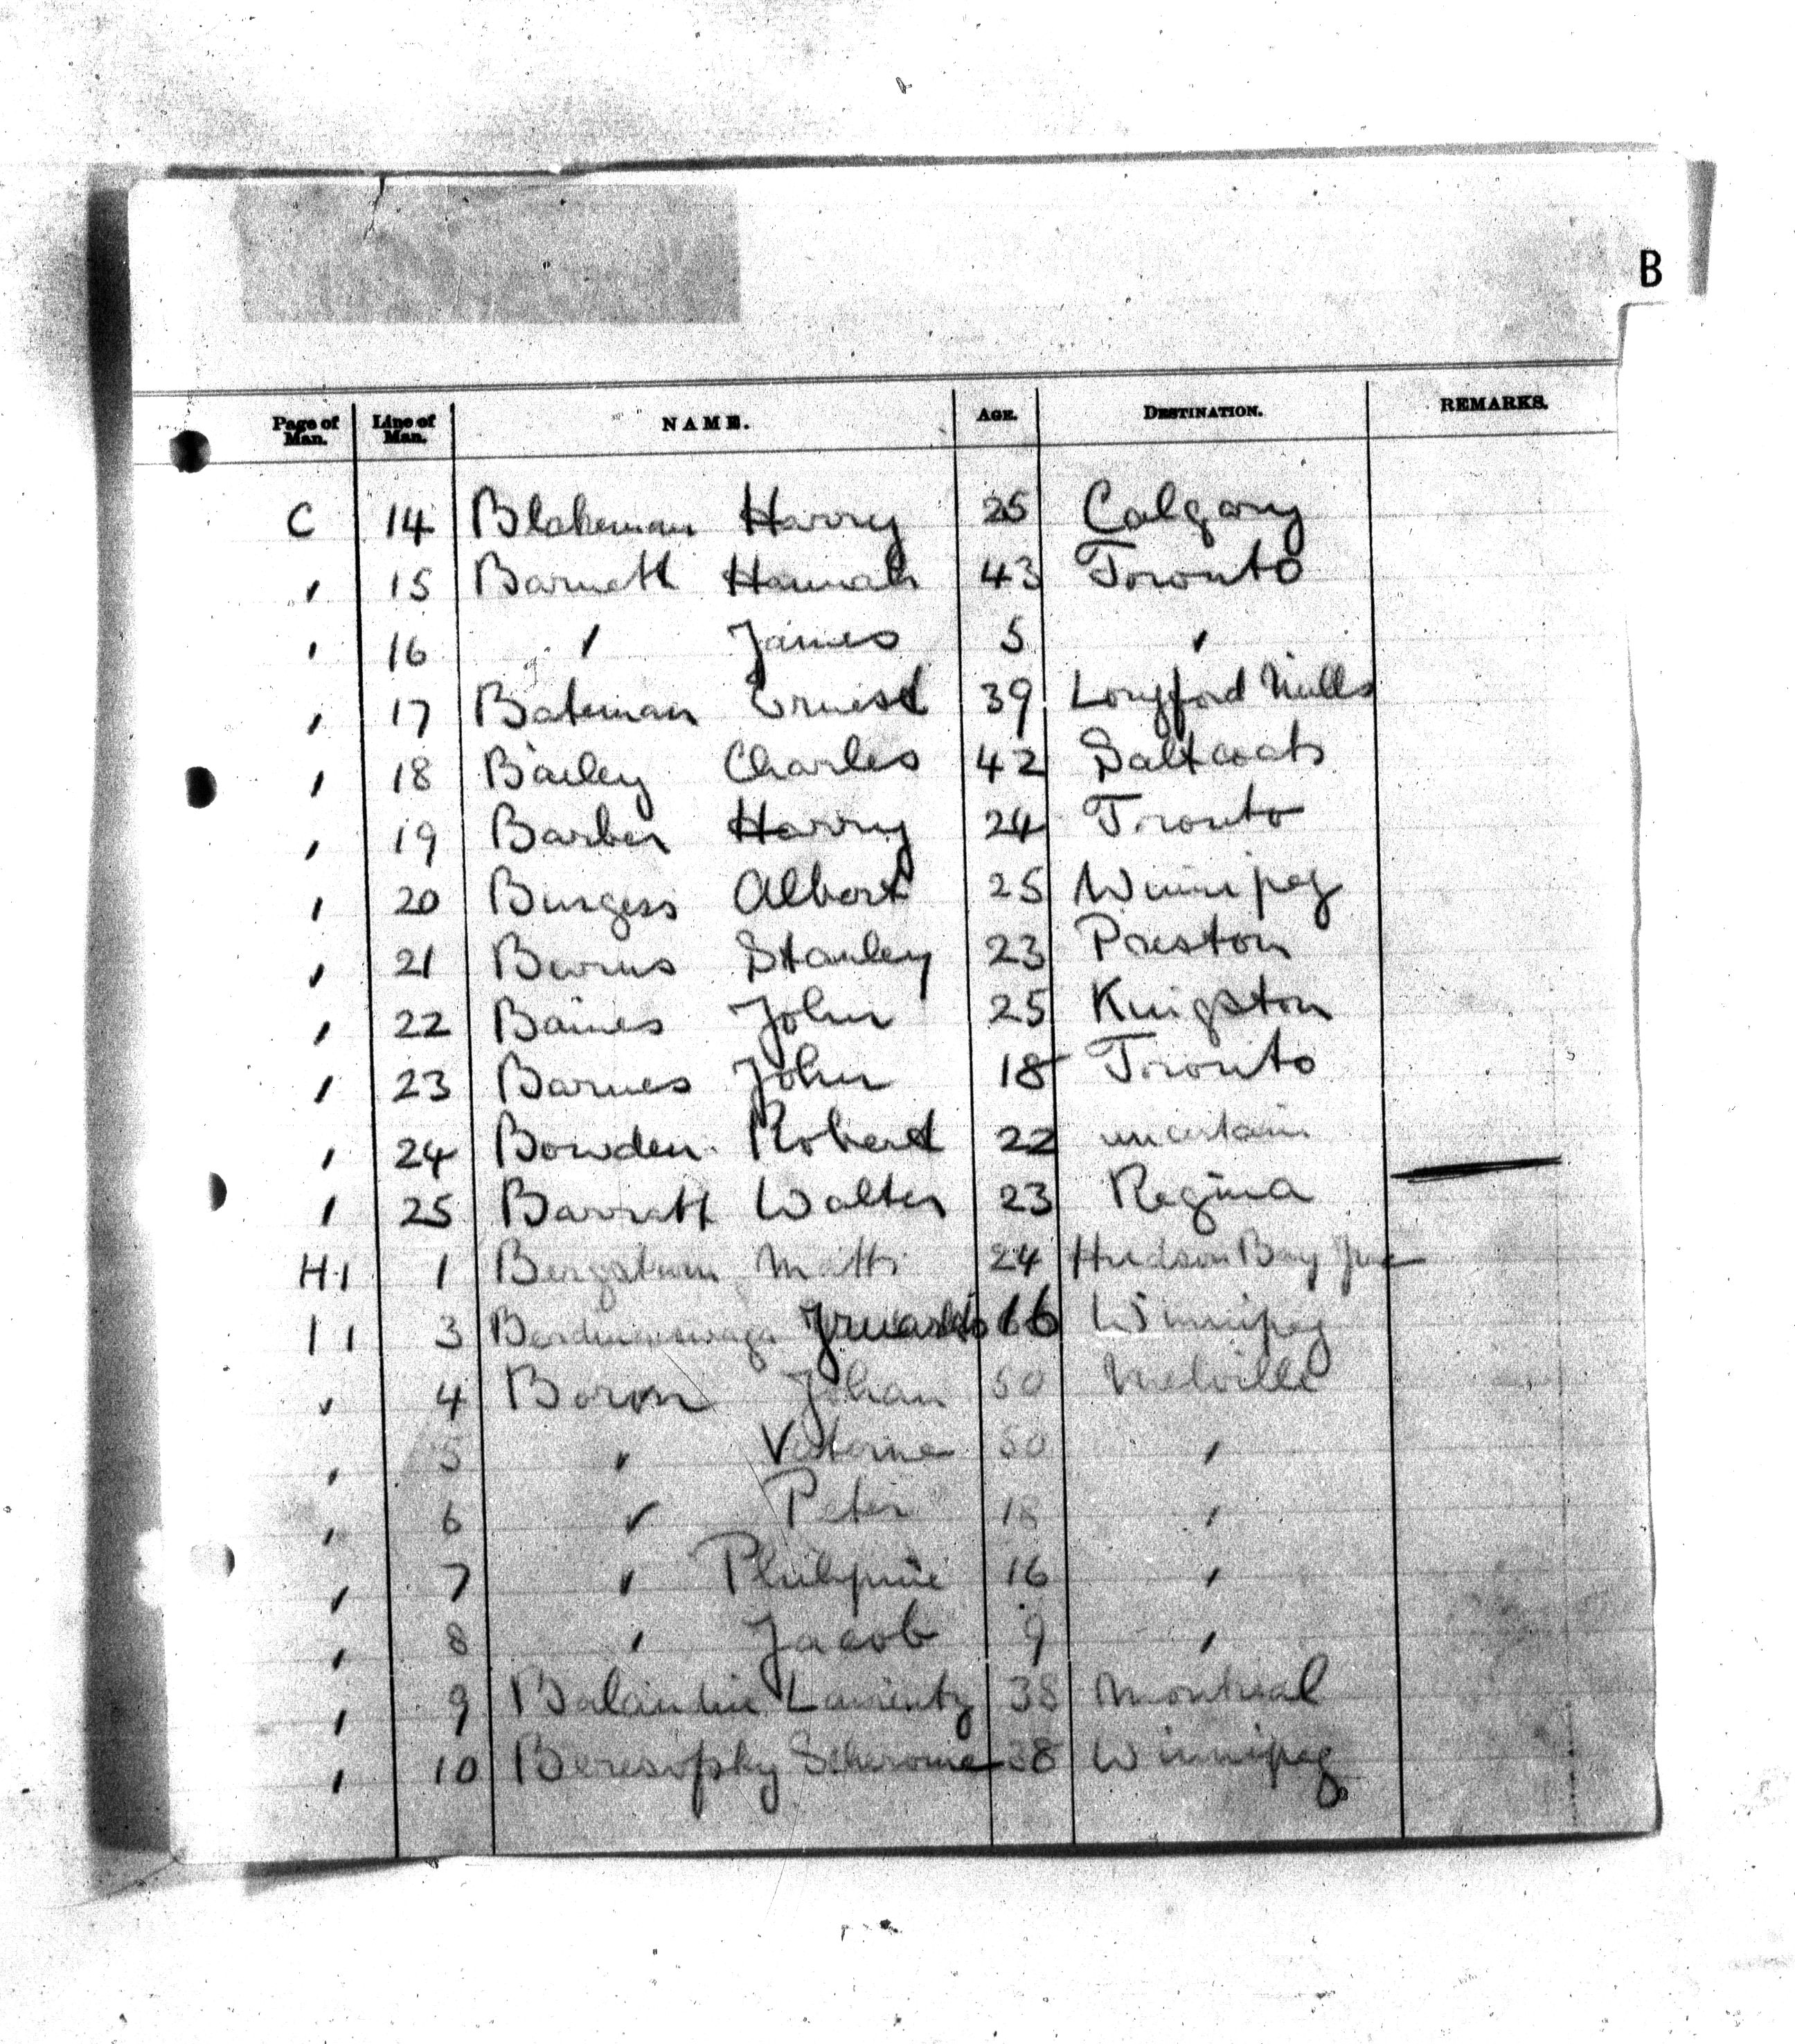 B
Page of Man. Line of Man. NAME. AGE. DESTINATION. REMARKS.
C 14 Blakeman Harry 25 Calgary
" 15 Barnett Hannah 43 Toronto
" 16 " James 5 "
" 17 Bateman Ernest 39 Longford Mills
" 18 Bailey Charles 42 Saltcoats
" 19 Barber Harry 24 Toronto
" 20 Burgess Albert 25 Winnipeg
" 21 Burns Stanley 23 Preston
" 22 Baines John 25 Kingston
" 23 Barnes John 18 Toronto
" 24 Bowden Robert 22 uncertain
" 25 Barratt Walter 23 Regina
H1 1 Bergstrom Matts 24 Hudson Bay Junc
11 3 16 Winnipeg
" 4 Boron Johan 50 Melville
" 5 " 50 "
" 6 " Peter 18 "
" 7 " Philipine 16 "
" 8 " Jacob 9 "
" 9 Balandin 38 Montreal
" 10 Beresofsky 38 Winnipeg